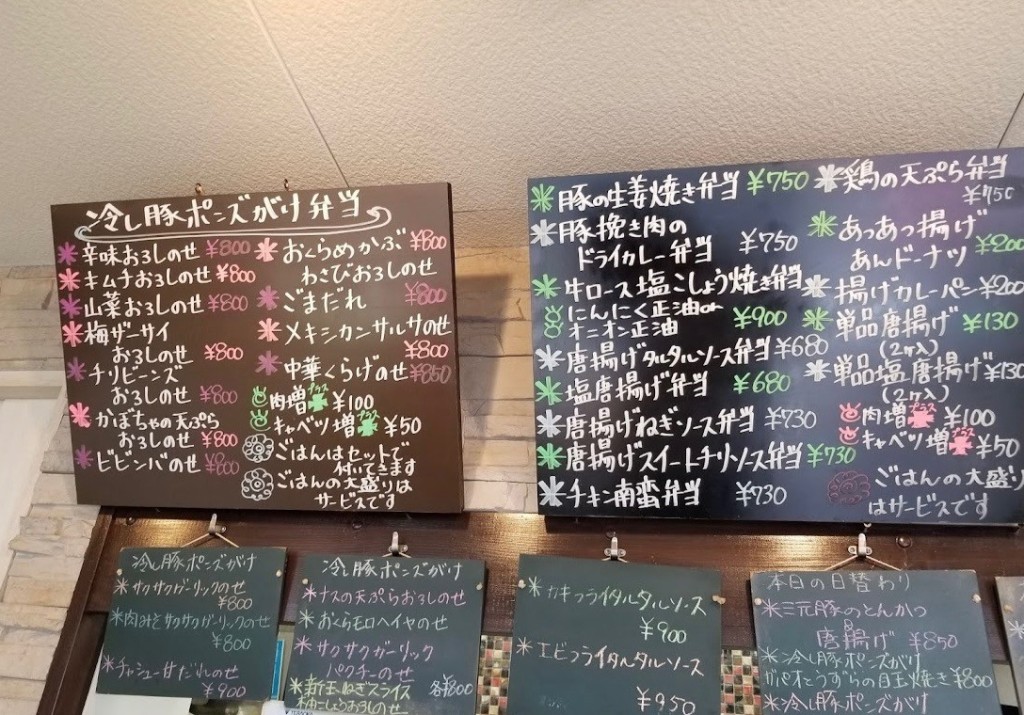 冷し豚ポンズがけ弁当
辛味おろしのせ ¥800
キムチおろしのせ ¥800
山菜おろしのせ ¥800
梅ザーサイ
おろしのせ ¥800
チリビーンズ
おろしのせ ¥800
かぼちゃの天ぷら
おろしのせ ¥800
ビビンバのせ ¥800
おくらめかぶ ¥800
わさびおろしのせ
ごまだれ ¥800
メキシカンサルサのせ
¥800
中華くらげのせ ¥850
肉増プラス ¥100
キャベツ増プラス ¥50
ごはんはセットで
付いてきます
ごはんの大盛りは
サービスです
豚の生姜焼き弁当 ¥750
豚挽き肉の
ドライカレー弁当 ¥750
牛ロース塩こしょう焼き弁当
にんにく正油or
オニオン正油 ¥900
唐揚げタルタルソース弁当 ¥680
塩唐揚げ弁当 ¥680
唐揚げねぎソース弁当 ¥730
唐揚げスイートチリソース弁当 ¥730
チキン南蛮弁当 ¥730
鶏の天ぷら弁当
¥750
あっあっ揚げ
あんドーナツ ¥200
揚げカレーパン ¥200
単品唐揚げ ¥130
(2ヶ入)
単品塩唐揚げ ¥130
(2ヶ入)
肉増プラス ¥100
キャベツ増プラス ¥50
ごはんの大盛り
はサービスです
冷し豚ポンズがけ
*サクサクガーリックのせ
¥800
*肉みそサクサクガーリックのせ
¥800
*チャシュー甘だれのせ
¥900
冷し豚ポンズがけ
*ナスの天ぷらおろしのせ
*おくらモロヘイヤのせ
*サクサクガーリック
パクチーのせ
*新玉ねぎスライス 各¥800
柚こしょうおろしのせ
*カキフライタルタルソース
¥900
*エビフライタルタルソース
¥950
本日の日替わり
*三元豚のとんかつ
&
唐揚げ ¥850
*冷し豚ポンズがけ
ガパオとうずらの目玉焼き ¥800
*冷し豚ポンズがけ